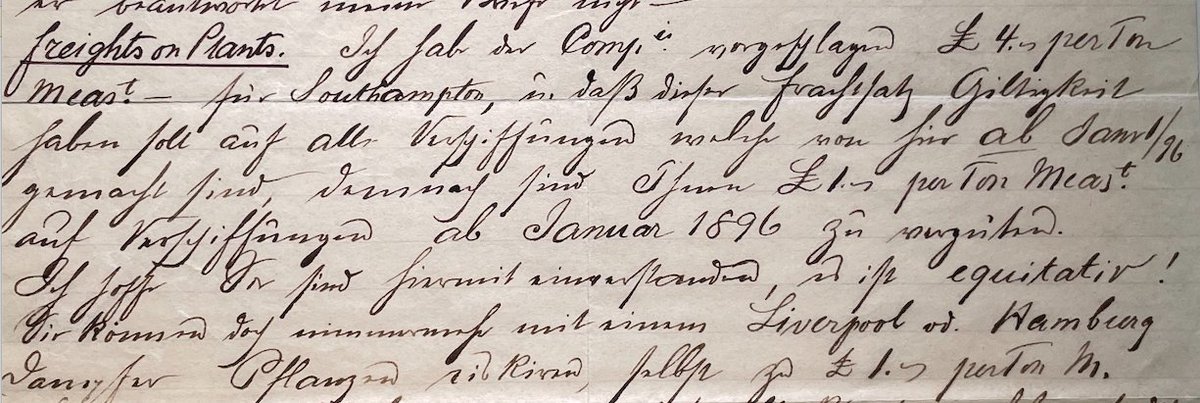 er beantwortet meine Briefe nicht —
freights on Plants. Ich habe der Comp.ie vorgeschlagen £ 4.– per Ton
Meast. — für Southampton, u. daß dieser Frachtsatz Giltigkeit
haben soll auf alle Verschiffungen welche von hier ab Janr 1/96
gemacht sind, demnach sind Ihnen £ 1.– per Ton Meast.
auf Verschiffungen ab Januar 1896 zu vergüten.
Ich hoffe Sie sind hiermit einverstanden, es ist equitativ!
Sie können doch nimmermehr mit einem Liverpool od. Hamburg
Dampfer Pflanzen riskiren, selbst zu £ 1.– per Ton M.